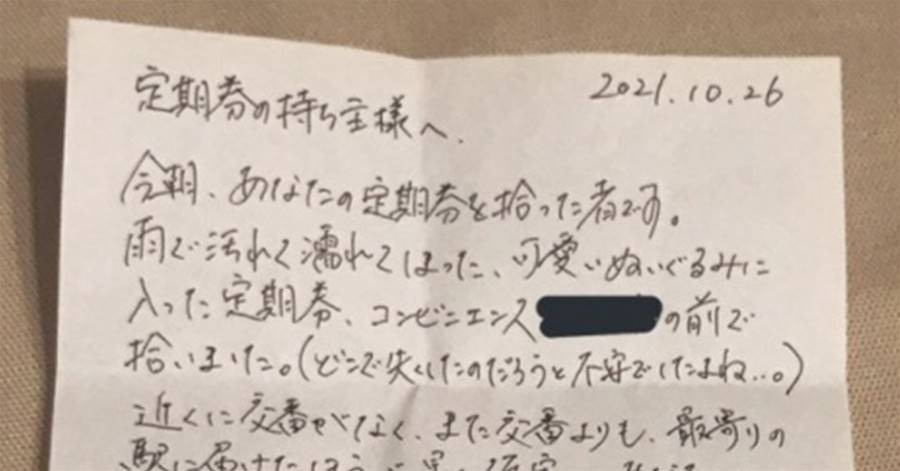 2021.10.26
定期券の持ち主様へ.
今朝、あなたの定期券を拾った者です。
雨で汚れて濡れてしまった、可愛いぬいぐるみに
入った定期券、コンビニエンス の前で
拾いました。(どこで失くしたのだろうと不安でしたよね...。)
近くに交番がなく、また交番よりも、最寄りの
駅に届けたほうが